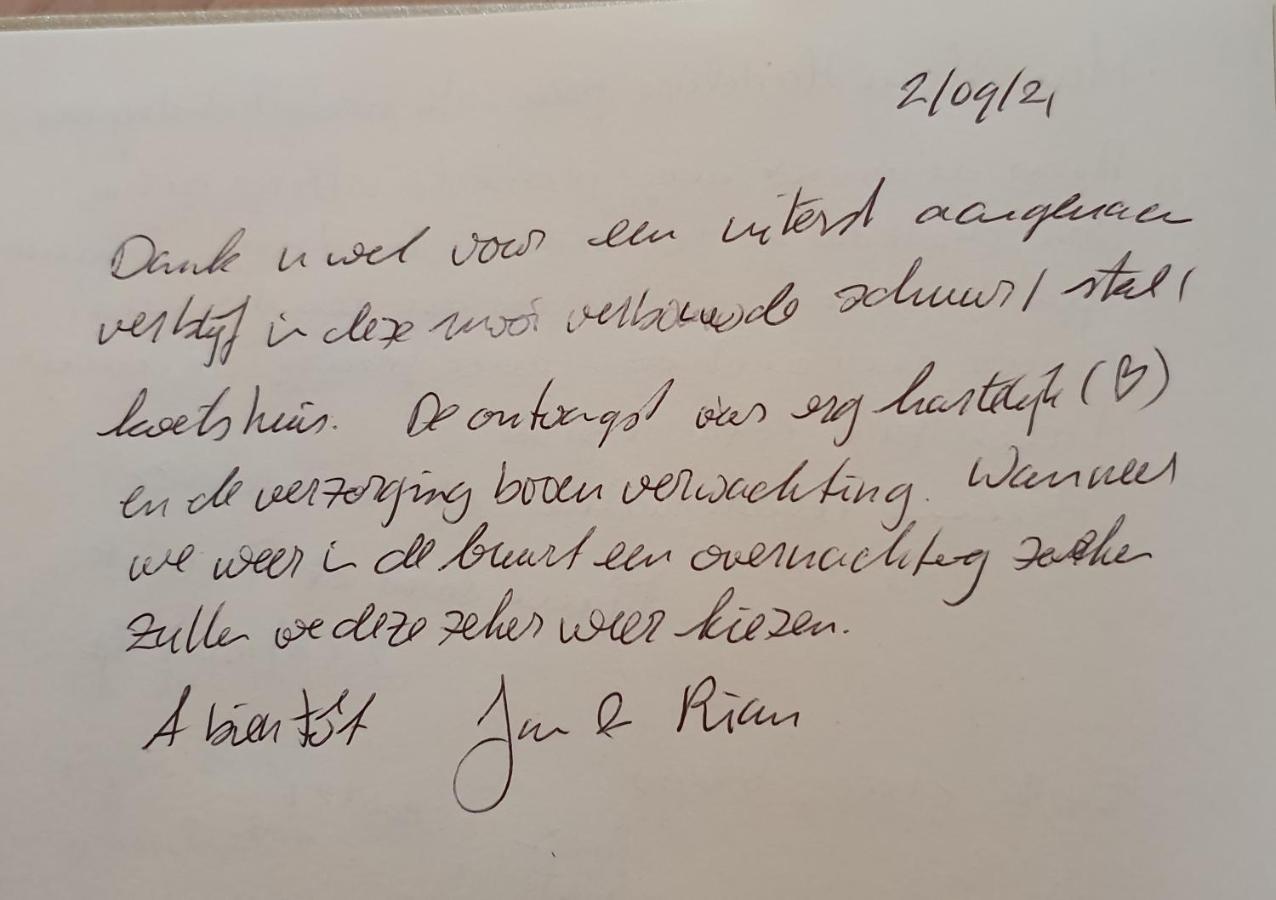 2/09/21
Dank u wel voor een uiterst aangenaam
verblijf in deze mooi verbouwde schuur/stal/
koetshuis. De ontvangst was erg hartelijk (♡)
en de verzorging boven verwachting. Wanneer
we weer in de buurt een overnachting zoeken
zullen we deze zeker weer kiezen.
A bientôt Jan & Rian